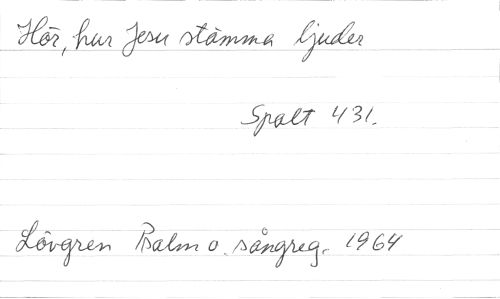 Hör, hur Jesu stämma ljuder
Spalt 431.
Lövgren Psalm o. sångreg. 1964